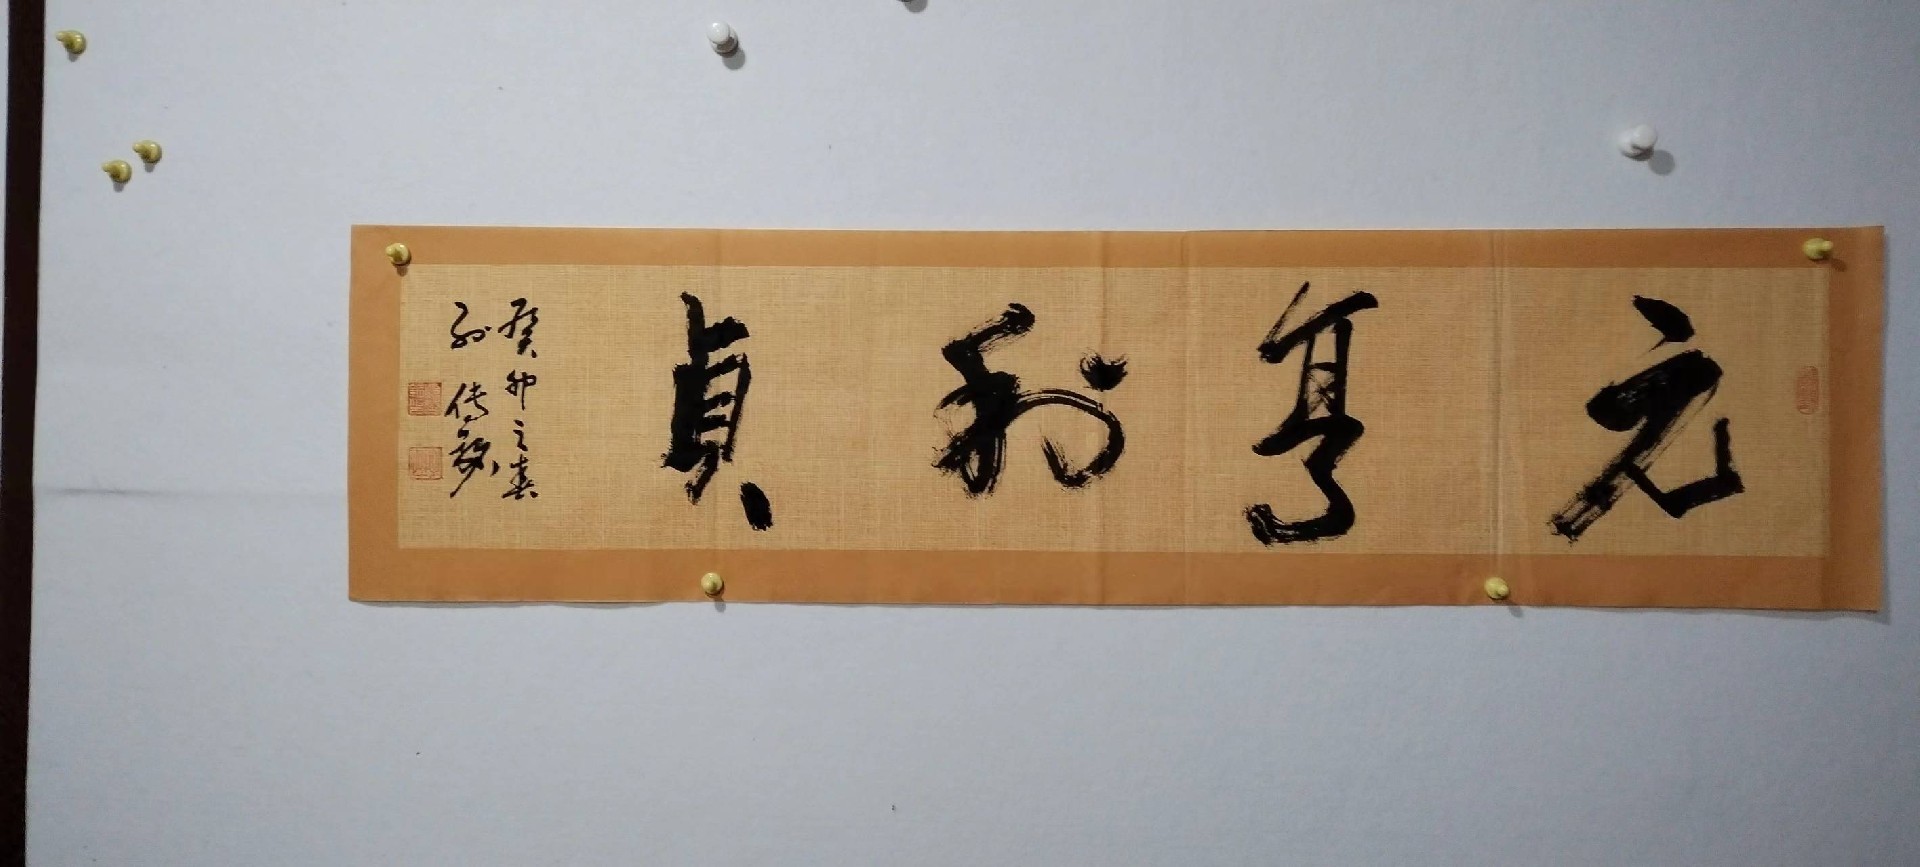 元亨利贞
癸卯之春
孙传